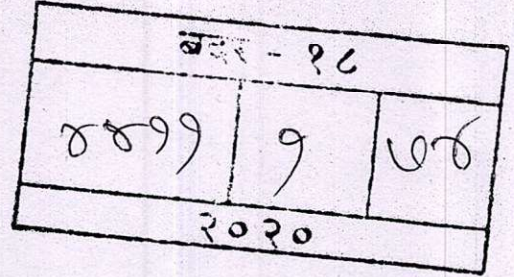 बदर - १८
४४११ १ ७४
२०२०